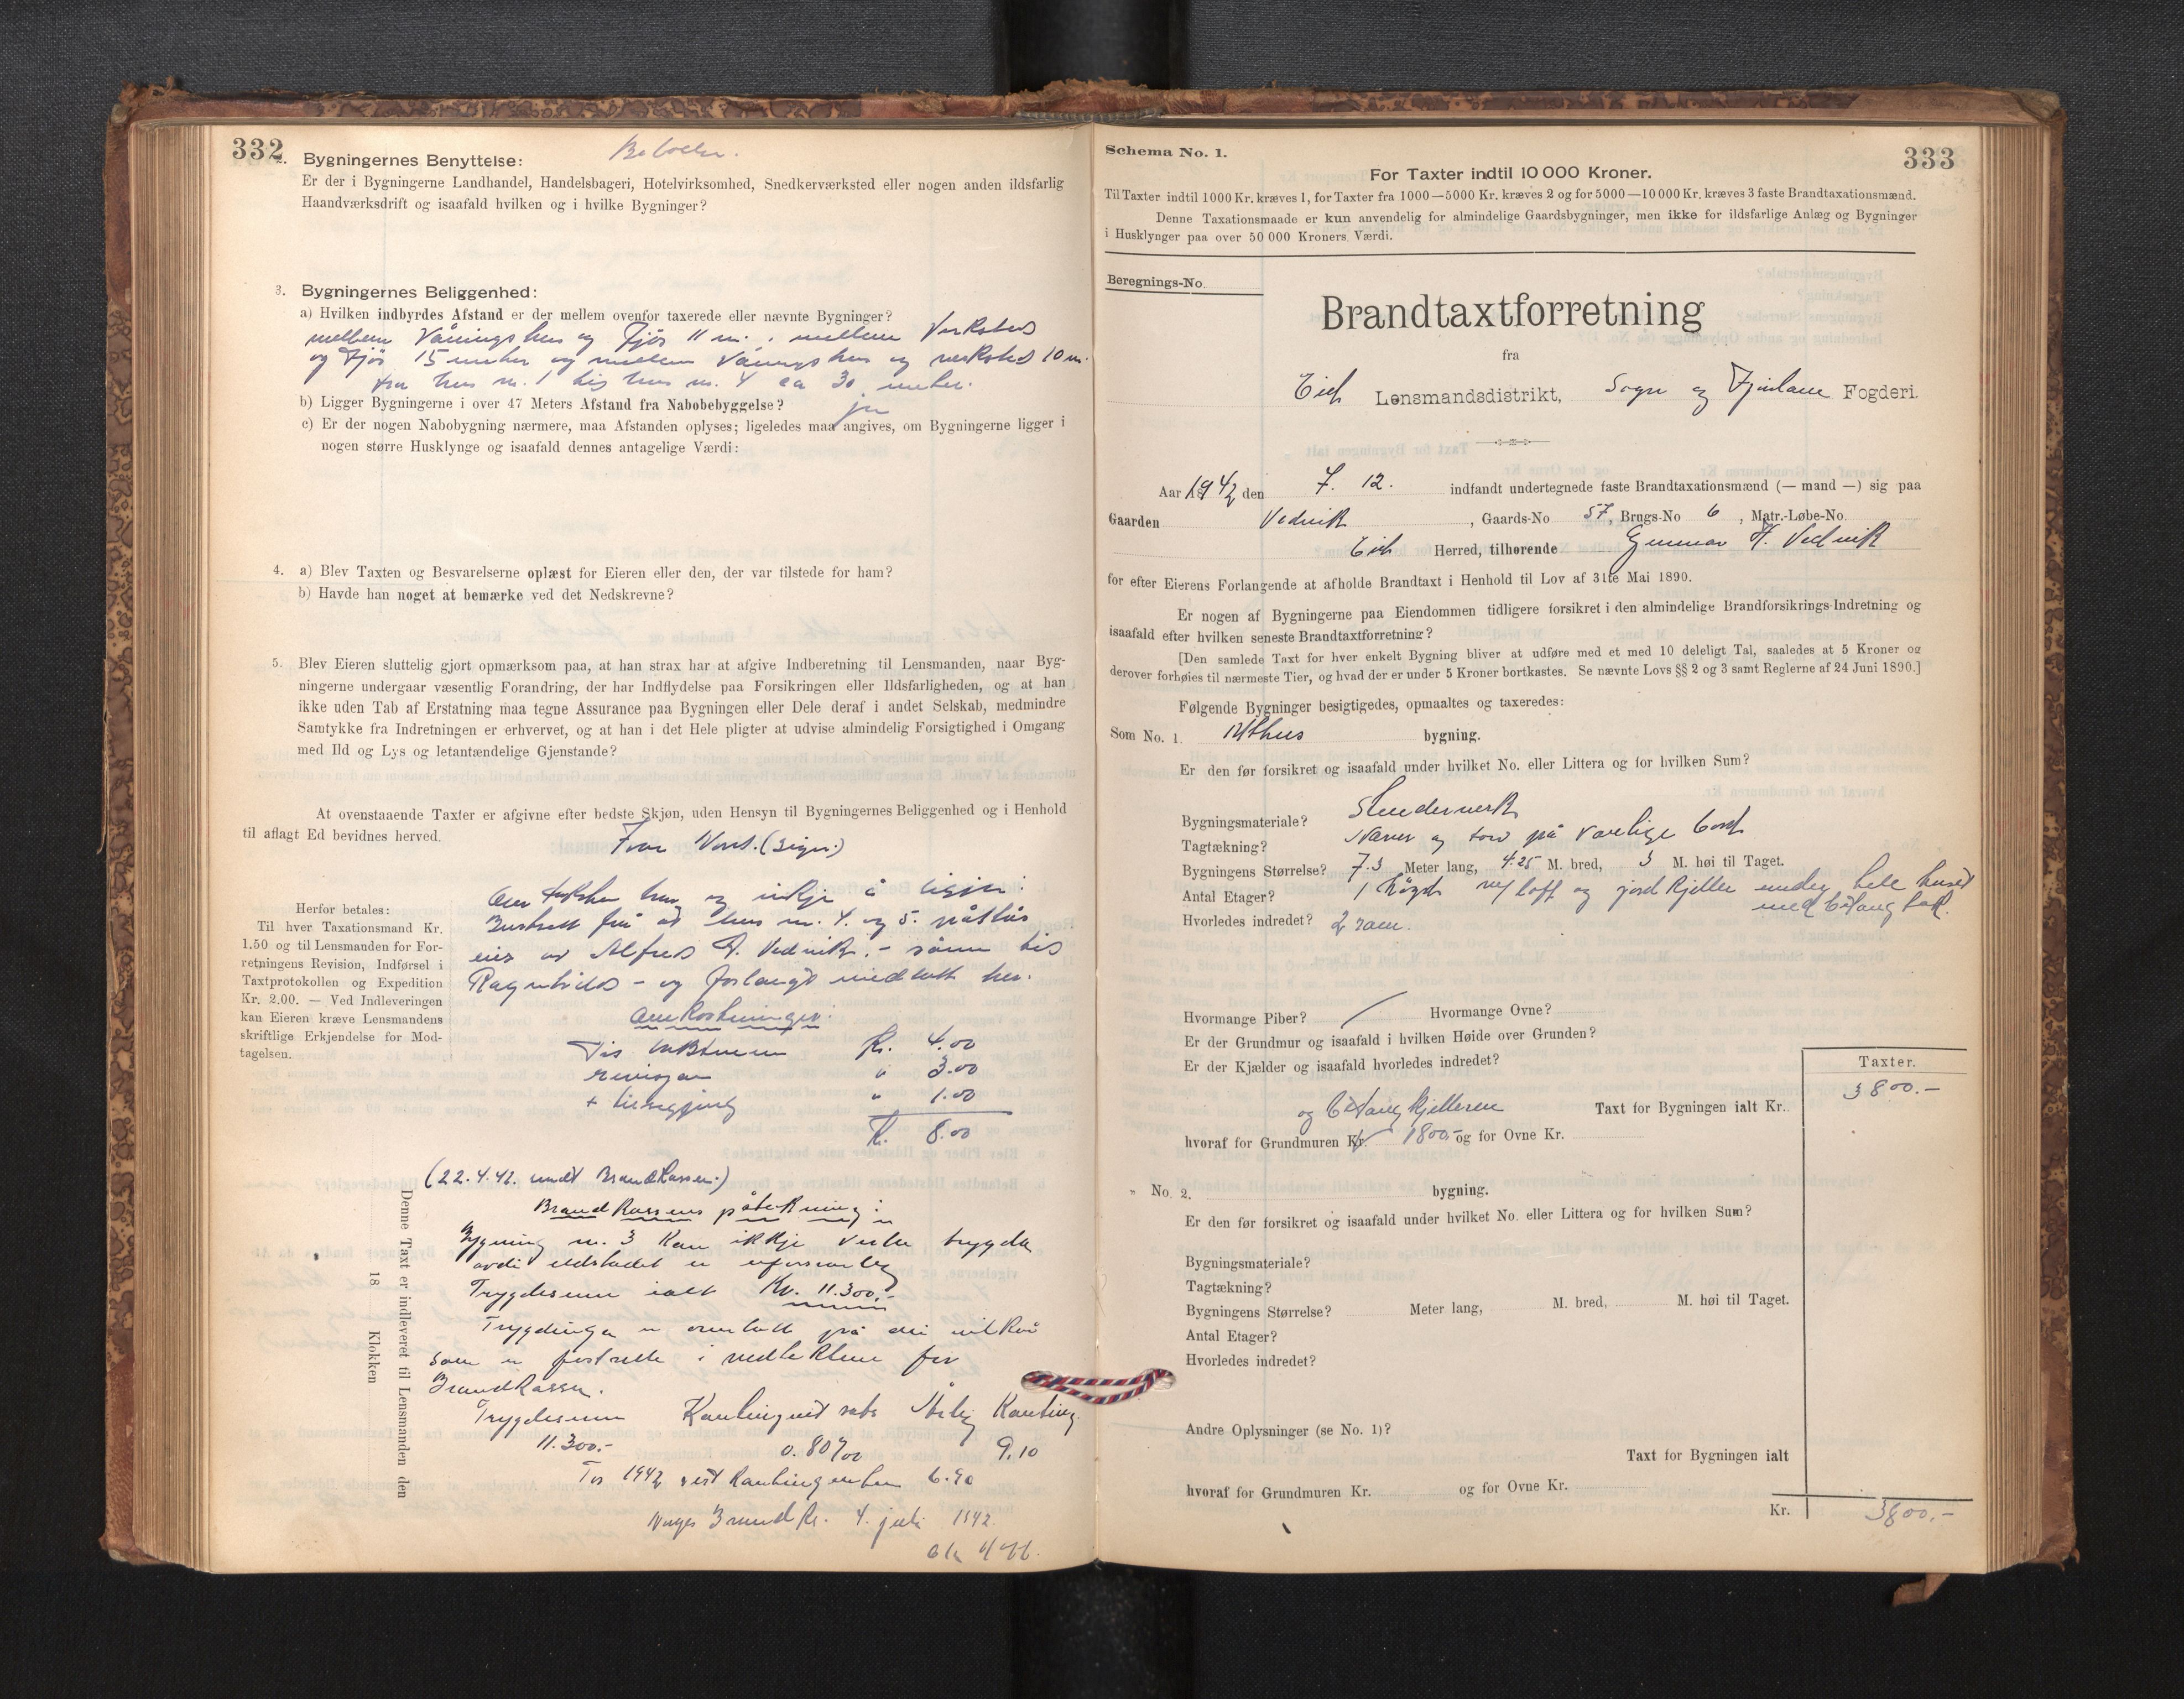 332
2. Bygningernes Benyttelse:
Er der i Bygningerne Landhandel, Handelsbageri, Hotelvirksomhed, Snedkerværksted eller nogen anden ildsfarlig
Haandværksdrift og isaafald hvilken og i hvilke Bygninger?
3. Bygningernes Beliggenhed:
a) Hvilken indbyrdes Afstand er der mellem ovenfor taxerede eller nævnte Bygninger?
mellem Våningshus og Fjös 11 m., mellem Verksted
og Fjös 15 meter og mellem Våningshus og verksted 10 m.
fra hus nr. 1 til hus nr. 4 ca 30 meter.
b) Ligger Bygningerne i over 47 Meters Afstand fra Nabobebyggelse? ja
c) Er der nogen Nabobygning nærmere, maa Afstanden oplyses; ligeledes maa angives, om Bygningerne ligger i
nogen større Husklynge og isaafald dennes antagelige Værdi:
4. a) Blev Taxten og Besvarelserne oplæst for Eieren eller den, der var tilstede for ham?
b) Havde han noget at bemærke ved det Nedskrevne?
5. Blev Eieren sluttelig gjort opmærksom paa, at han strax har at afgive Indberetning til Lensmanden, naar Byg-
ningerne undergaar væsentlig Forandring, der har Indflydelse paa Forsikringen eller Ildsfarligheden, og at han
ikke uden Tab af Erstatning maa tegne Assurance paa Bygningen eller Dele deraf i andet Selskab, medmindre
Samtykke fra Indretningen er erhvervet, og at han i det Hele pligter at udvise almindelig Forsigtighed i Omgang
med Ild og Lys og letantændelige Gjenstande?
At ovenstaaende Taxter er afgivne efter bedste Skjøn, uden Hensyn til Bygningernes Beliggenhed og i Henhold
til aflagt Ed bevidnes herved.
(sign.)
Herfor betales:
Til hver Taxationsmand Kr.
1.50 og til Lensmanden for For-
retningens Revision, Indførsel i
Taxtprotokollen og Expedition
Kr. 2.00. — Ved Indleveringen
kan Eieren kræve Lensmandens
skriftlige Erkjendelse for Mod-
tagelsen.
Om taksten har eg inkje å segja:
hus nr. 4. og 5.
Alfred Vedvik
Ragnhild - og forlangt
Omkostninger:
Kr. 4.00
revisjon " 3.00
+ " 1.00
Kr. 8.00
Denne Taxt er indleveret til Lensmanden den
18 Klokken
(22.4.42. sendt Brandkassen.)
Brandkassens påtekning:
Bygning nr. 3 kan ikkje verta trygda
avdi eldstadet er uforsvarleg
Trygdesum ialt Kr. 11.300.-
Trygdinga er overlatt på dei vilkår
som er fastsette i vedtektene for
Brandkassen.
Trygdesum Kontingent sats Årleg Konting.
11.300.- 0.80‰ 9.10
For 1942 vert kontingenten 6.90
Norges Brandk. 4. juli 1942.
333
Schema No. 1.
For Taxter indtil 10 000 Kroner.
Til Taxter indtil 1000 Kr. kræves 1, for Taxter fra 1000—5000 Kr. kræves 2 og for 5000—10000 Kr. kræves 3 faste Brandtaxationsmænd.
Denne Taxationsmaade er kun anvendelig for almindelige Gaardsbygninger, men ikke for ildsfarlige Anlæg og Bygninger
i Husklynger paa over 50 000 Kroners Værdi.
Beregnings-No.
Brandtaxtforretning
fra
Eid Lensmandsdistrikt, Sogn og Fjordane Fogderi.
Aar 1942 den 7. 12. indfandt undertegnede faste Brandtaxationsmænd (— mand —) sig paa
Gaarden Vedvik, Gaards-No 57, Brugs-No 6, Matr.-Løbe-No.
Eid Herred, tilhørende Gunnar H. Vedvik
for efter Eierens Forlangende at afholde Brandtaxt i Henhold til Lov af 31te Mai 1890.
Er nogen af Bygningerne paa Eiendommen tidligere forsikret i den almindelige Brandforsikrings-Indretning og
isaafald efter hvilken seneste Brandtaxtforretning?
[Den samlede Taxt for hver enkelt Bygning bliver at udføre med et med 10 deleligt Tal, saaledes at 5 Kroner og
derover forhøies til nærmeste Tier, og hvad der er under 5 Kroner bortkastes. Se nævnte Lovs §§ 2 og 3 samt Reglerne af 24 Juni 1890.]
Følgende Bygninger besigtigedes, opmaaltes og taxeredes:
Som No. 1. Uthus bygning.
Er den før forsikret og isaafald under hvilket No. eller Littera og for hvilken Sum?
Bygningsmateriale? Stenderverk
Tagtækning? Never og torv på vanlige bord
Bygningens Størrelse? 7.3 Meter lang, 4.25 M. bred, 3 M. høi til Taget.
Antal Etager? 1 högd m/ loft og jord kjeller under hele huset
med betong tak.
Hvorledes indredet? 2 rom.
Hvormange Piber? Hvormange Ovne?
Er der Grundmur og isaafald i hvilken Høide over Grunden?
Er der Kjælder og isaafald hvorledes indredet?
Taxter.
og betong kjelleren Taxt for Bygningen ialt Kr. 3800.-
hvoraf for Grundmuren Kr. 1800.- og for Ovne Kr.
" No. 2. bygning.
Er den før forsikret og isaafald under hvilket No. eller Littera og for hvilken Sum?
Bygningsmateriale?
Tagtækning?
Bygningens Størrelse? Meter lang, M. bred, M. høi til Taget.
Antal Etager?
Hvorledes indredet?
Andre Oplysninger (se No. 1)?
Taxt for Bygningen ialt
hvoraf for Grundmuren Kr. og for Ovne Kr.
Kr. 3800.-